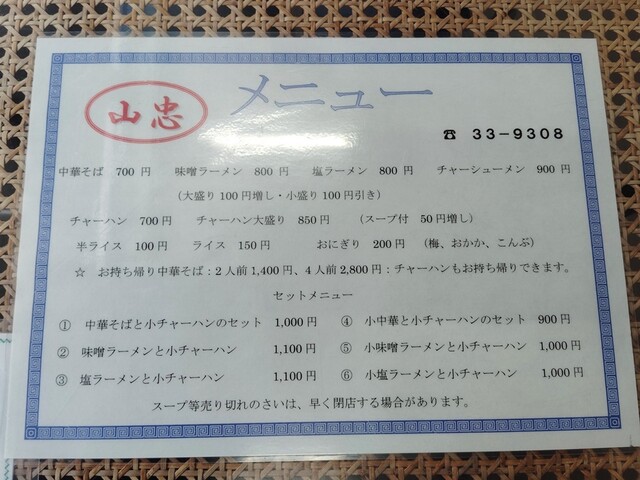 山忠
メニュー
☎ 33-9308
中華そば 700 円 味噌ラーメン 800 円 塩ラーメン 800 円 チャーシューメン 900 円
（大盛り 100 円増し・小盛り 100 円引き）
チャーハン 700 円 チャーハン大盛り 850 円 （スープ付 50 円増し）
半ライス 100 円 ライス 150 円 おにぎり 200 円 （梅、おかか、こんぶ）
☆ お持ち帰り中華そば：2 人前 1,400 円、4 人前 2,800 円：チャーハンもお持ち帰りできます。
セットメニュー
① 中華そばと小チャーハンのセット 1,000 円 ④ 小中華と小チャーハンのセット 900 円
② 味噌ラーメンと小チャーハン 1,100 円 ⑤ 小味噌ラーメンと小チャーハン 1,000 円
③ 塩ラーメンと小チャーハン 1,100 円 ⑥ 小塩ラーメンと小チャーハン 1,000 円
スープ等売り切れのさいは、早く閉店する場合があります。